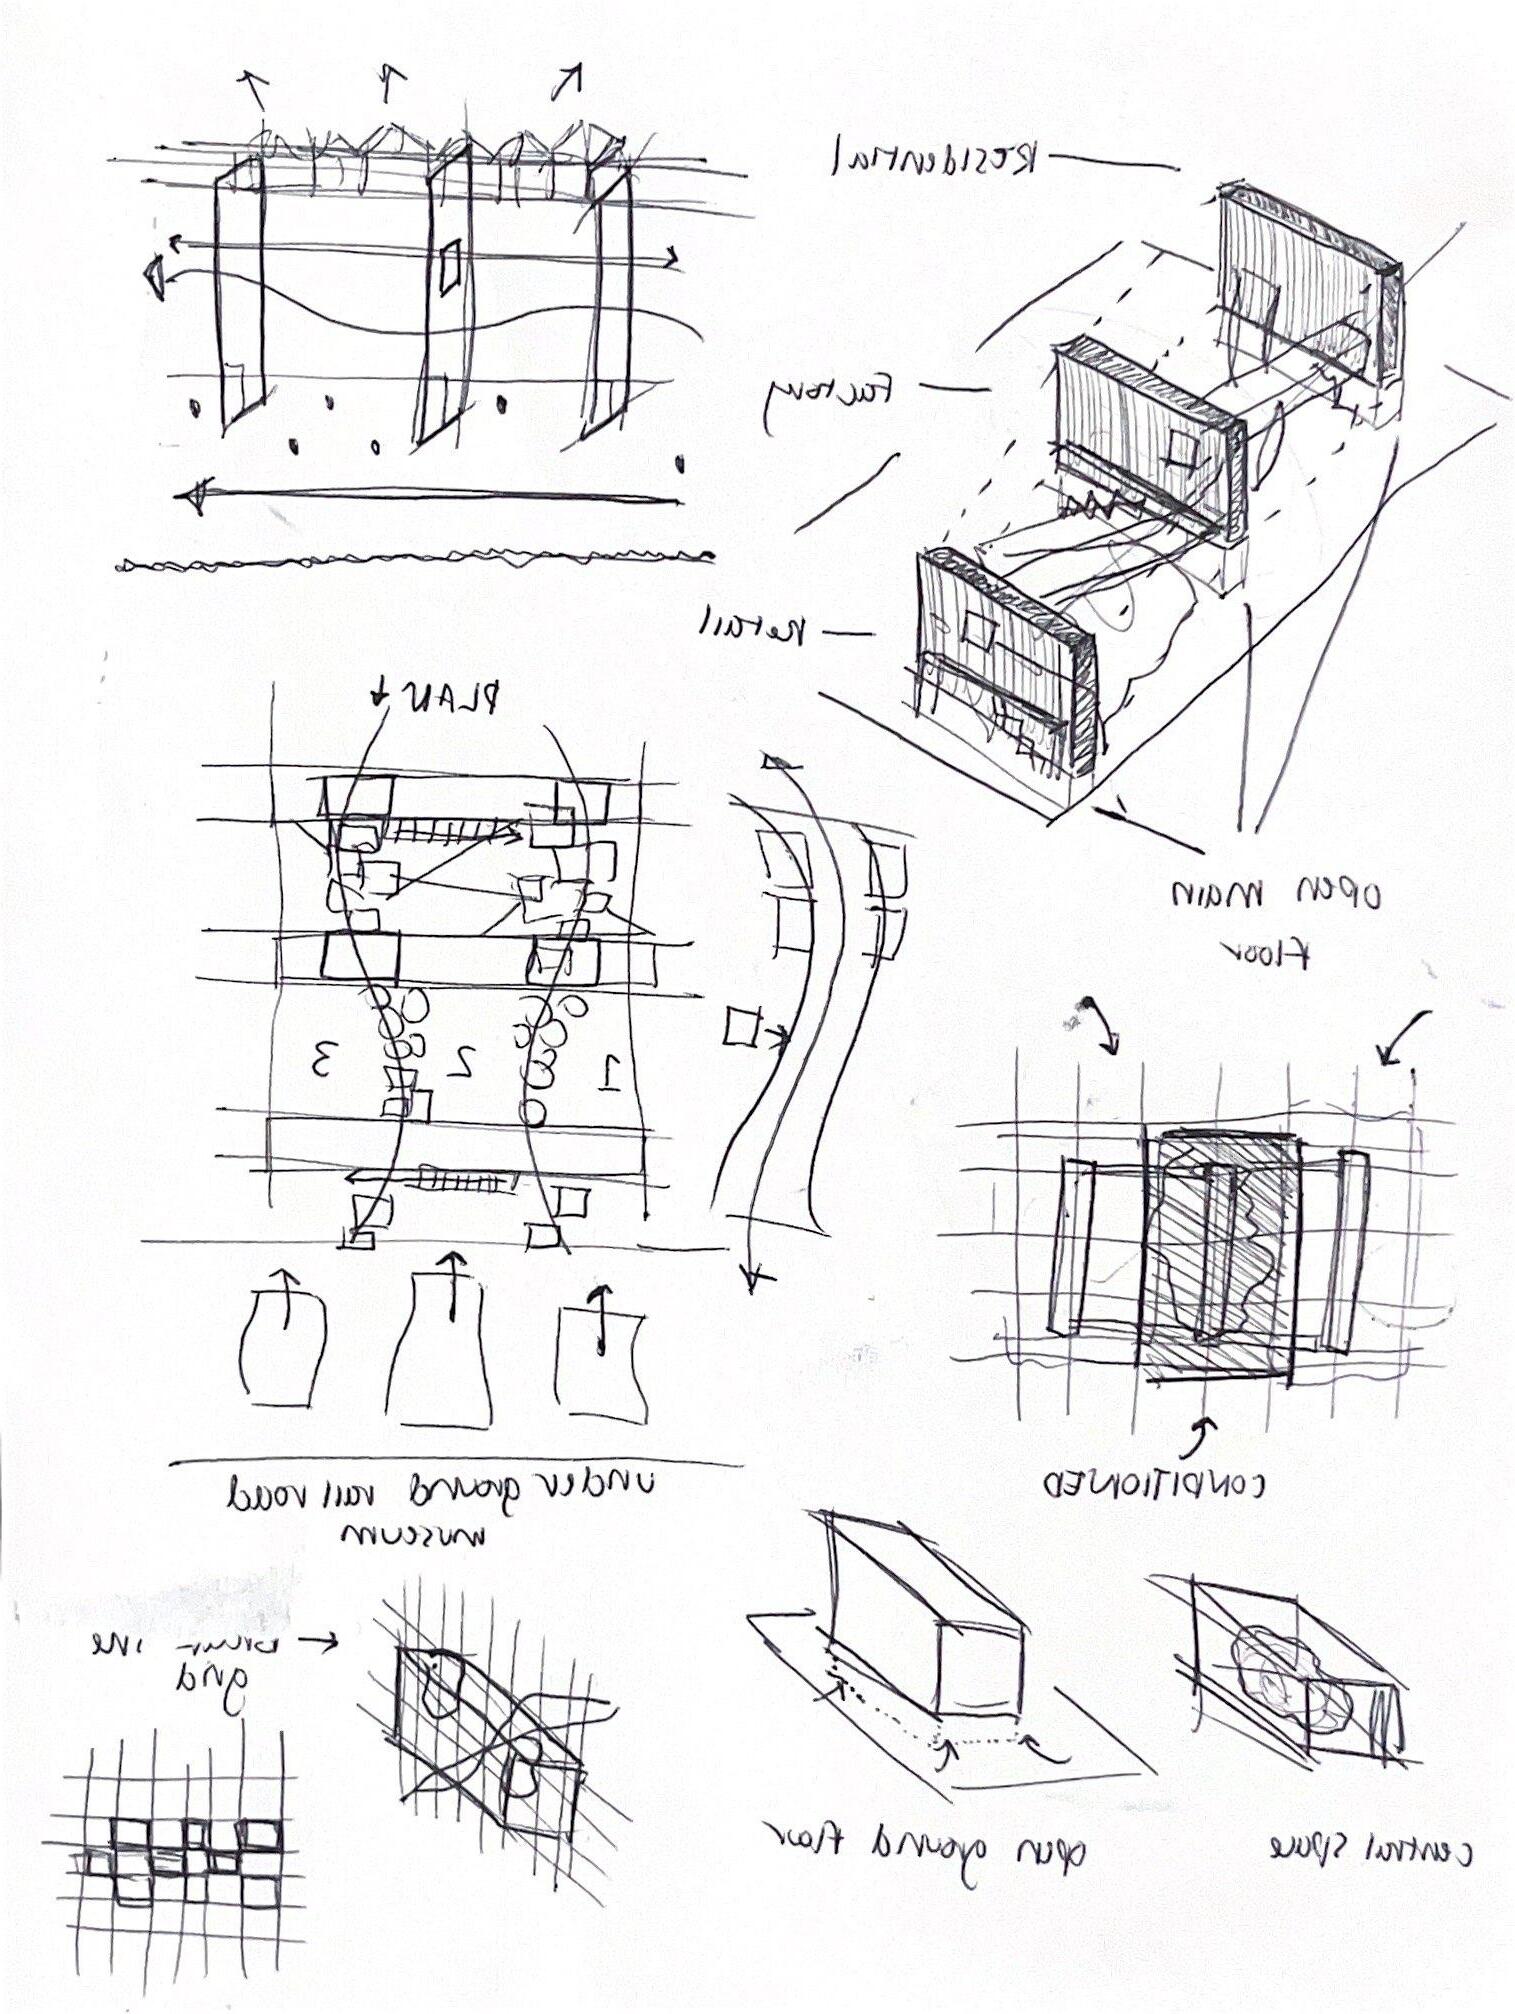 Residential
Factory
Retail
open main
floor
PLAN
1 2 3
CONDITIONED
under ground rail road
museum
grid
open ground floor
central space